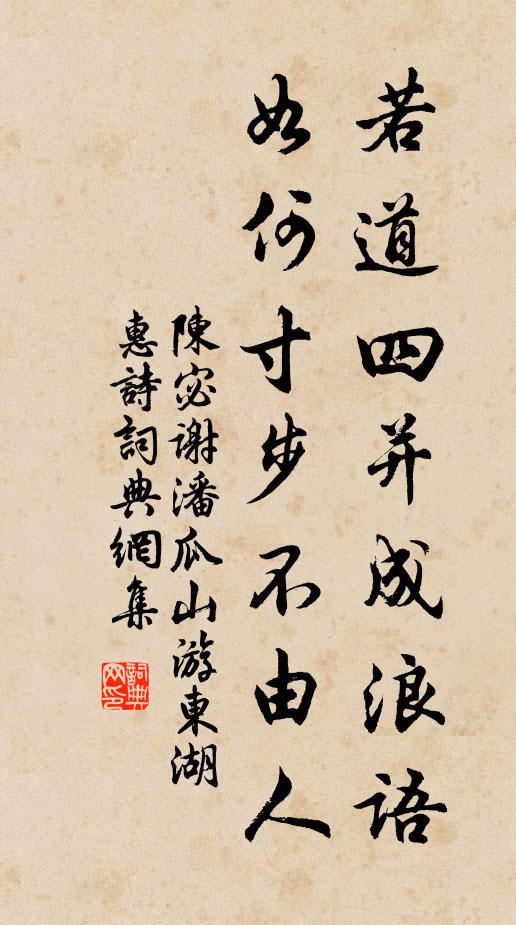 若道四并成浪語
如何寸步不由人
陳宓謝潘瓜山游東湖
惠詩詞典網集
詞典網印